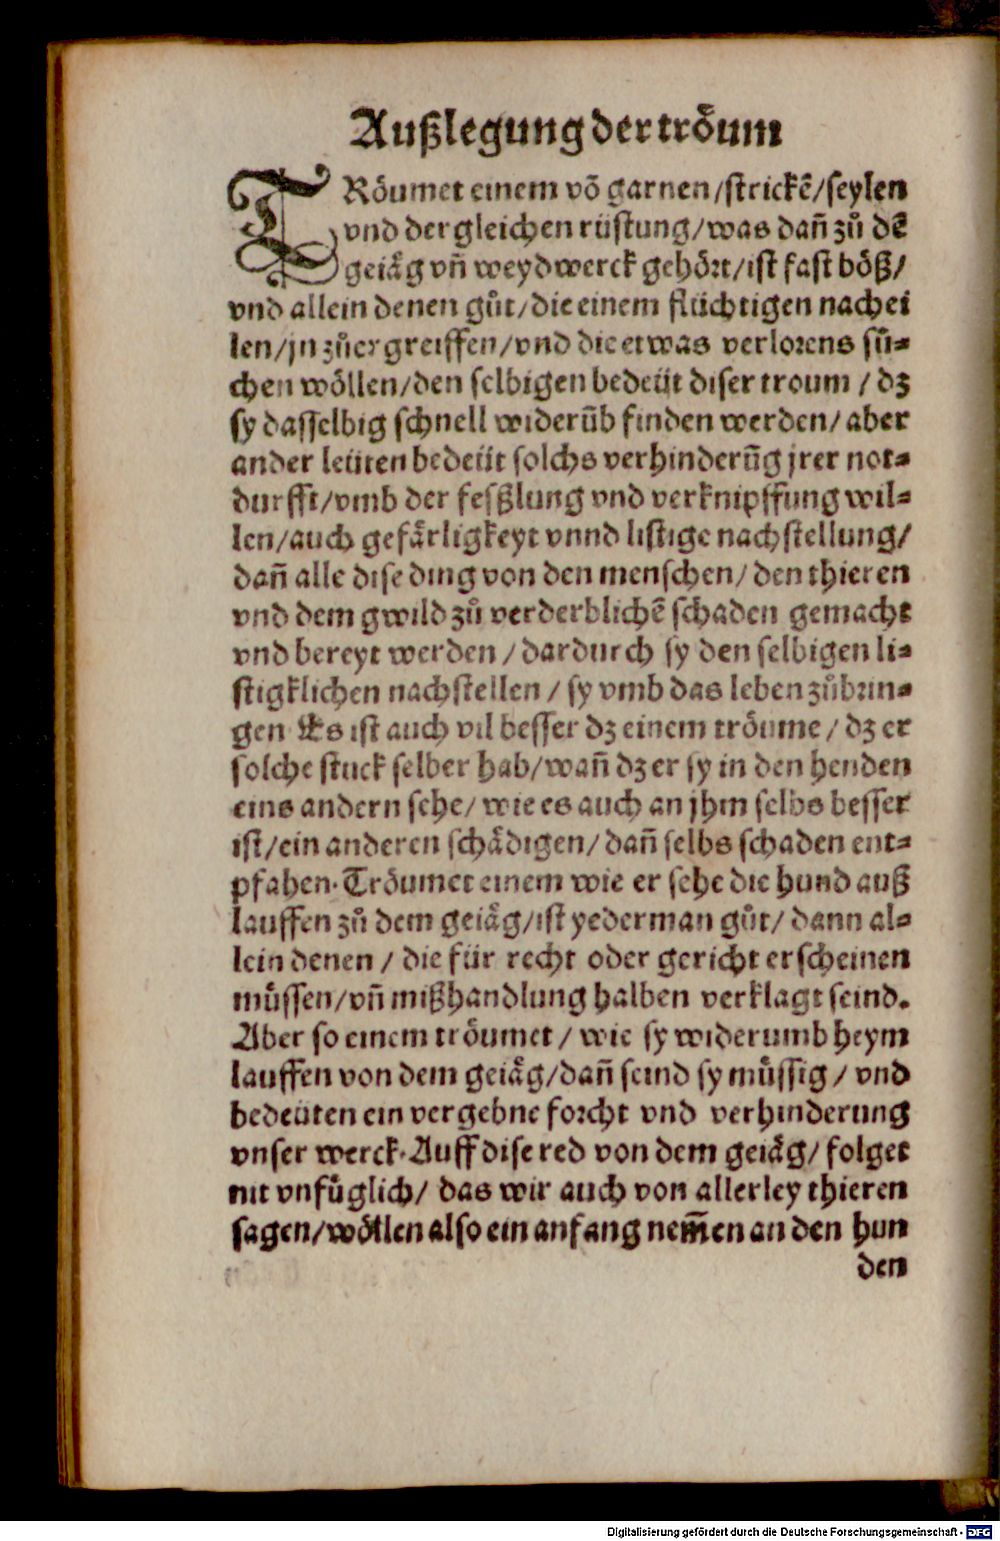 Außlegung der troͤum
TRoͤumet einem võ garnen/strickẽ/seylen
vnd der gleichen rüstung/was dañ zuͦ dẽ
geiaͤg vñ weydwerck gehoͤrt/ist fast boͤß/
vnd allein denen guͦt/die einem flüchtigen nachei
len/jn zuͦergreiffen/vnd die etwas verlorens suͦ-
chen woͤllen/den selbigen bedeüt diser troum / dz
sy dasselbig schnell widerũb finden werden/aber
ander leüten bedeüt solchs verhinderũg jrer not-
durfft/vmb der feßlung vnd verknipffung wil-
len/auch gefaͤrligkeyt vnnd listige nachstellung/
dañ alle dise ding von den menschen/den thieren
vnd dem gwild zuͦ verderblichẽ schaden gemacht
vnd bereyt werden / dardurch sy den selbigen li-
stigklichen nachstellen / sy vmb das leben zuͦbrin-
gen. Es ist auch vil besser dz einem troͤume / dz er
solche stuck selber hab/wañ dz er sy in den henden
eins andern sehe/ wie es auch an jhm selbs besser
ist/ein anderen schaͤdigen/dañ selbs schaden ent-
pfahen. Troͤumet einem wie er sehe die hund auß
lauffen zuͦ dem geiaͤg/ist yederman guͦt/ dann al-
lein denen / die für recht oder gericht erscheinen
muͤssen/vñ mißhandlung halben verklagt seind.
Aber so einem troͤumet / wie sy widerumb heym
lauffen von dem geiaͤg/dañ seind sy muͤssig / vnd
bedeüten ein vergebne forcht vnd verhinderung
vnser werck. Auff dise red von dem geiaͤg/ folget
nit vnfuͤglich/ das wir auch von allerley thieren
sagen/woͤllen also ein anfang nem̃en an den hun
den
Digitalisierung gefördert durch die Deutsche Forschungsgemeinschaft - DFG